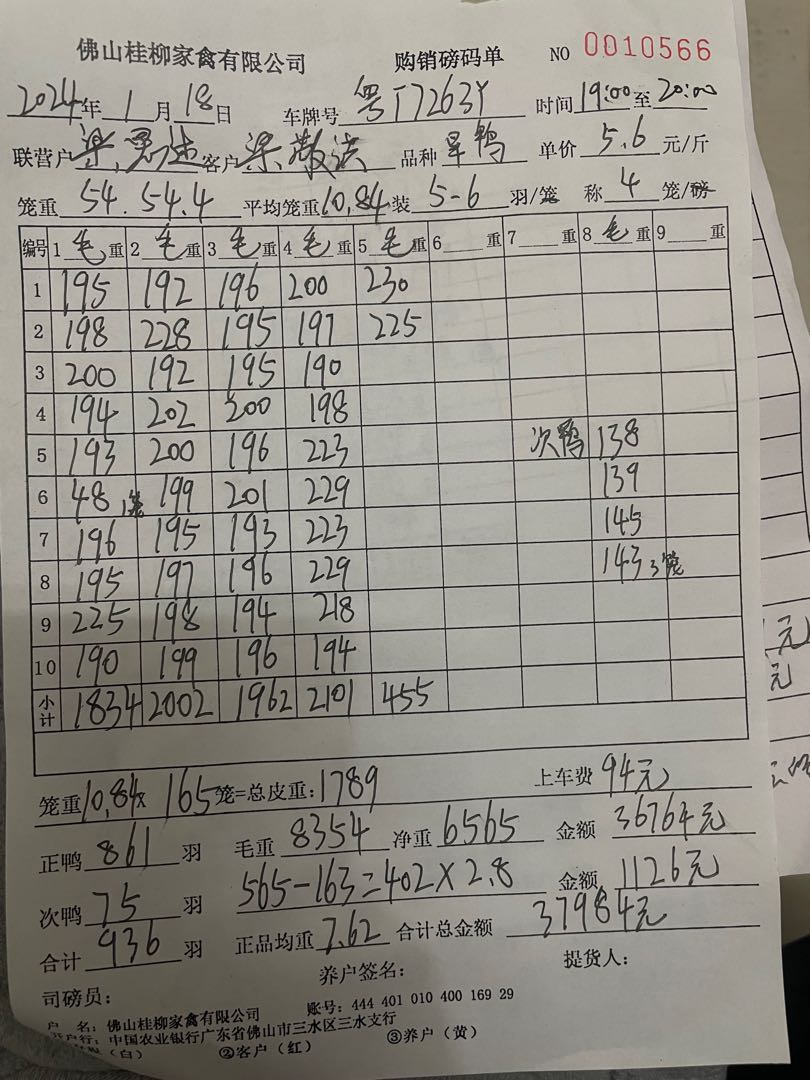 佛山桂柳家禽有限公司 购销磅码单 NO 0010566
2024年1月18日 车牌号 粤T7263Y 时间19:00至20:00
联营户 梁 客户 梁 品种 旱鸭 单价 5.6 元/斤
笼重 54.54.4 平均笼重10.84装 5-6 羽/笼 称 4 笼/磅
编号 1 毛 重 2 毛 重 3 毛 重 4 毛 重 5 毛 重 6 重 7 重 8 毛 重 9 重
1 195 192 196 200 230
2 198 228 195 197 225
3 200 192 195 190
4 194 202 200 198
5 193 200 196 223 次鸭 138
6 48 1笼 199 201 229 139
7 196 195 193 223 145
8 195 197 196 229 143 3笼
9 225 198 194 218
10 190 199 196 194
小计 1834 2002 1962 2101 455
笼重10.84x 165笼=总皮重:1789 上车费 94元
正鸭 861 羽 毛重 8354 净重 6565 金额 36764元
次鸭 75 羽 565-163=402×2.8 金额 1126元
合计 936 羽 正品均重 7.62 合计总金额 37984元
司磅员: 养户签名: 提货人:
户 名: 佛山桂柳家禽有限公司 账号: 444 401 010 400 169 29
开户行: 中国农业银行广东省佛山市三水区三水支行
(白) ②客户(红) ③养户(黄)